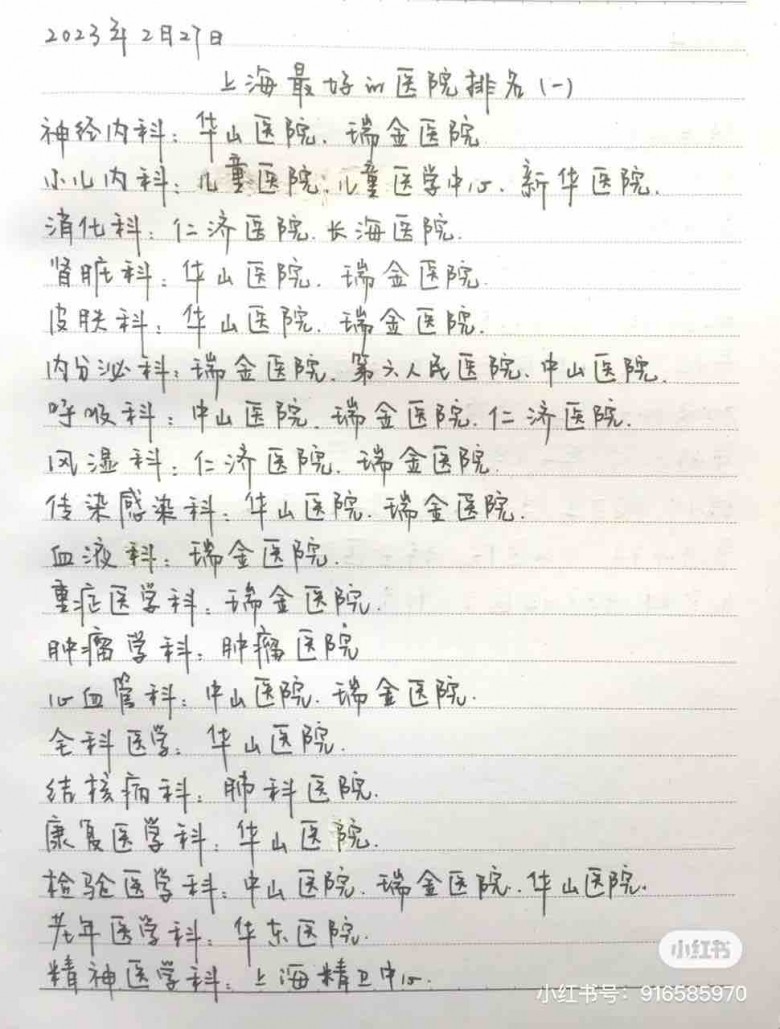 2023年2月27日
上海最好的医院排名(一)
神经内科：华山医院、瑞金医院
小儿内科：儿童医院、儿童医学中心、新华医院.
消化科：仁济医院、长海医院.
肾脏科：华山医院、瑞金医院.
皮肤科：华山医院、瑞金医院.
内分泌科：瑞金医院、第六人民医院、中山医院.
呼吸科：中山医院、瑞金医院、仁济医院.
风湿科：仁济医院、瑞金医院.
传染感染科：华山医院、瑞金医院.
血液科：瑞金医院.
重症医学科：瑞金医院.
肿瘤学科：肿瘤医院
心血管科：中山医院、瑞金医院.
全科医学：华山医院.
结核病科：肺科医院.
康复医学科：华山医院.
检验医学科：中山医院、瑞金医院、华山医院.
老年医学科：华东医院.
精神医学科：上海精卫中心.
小红书
小红书号：916585970